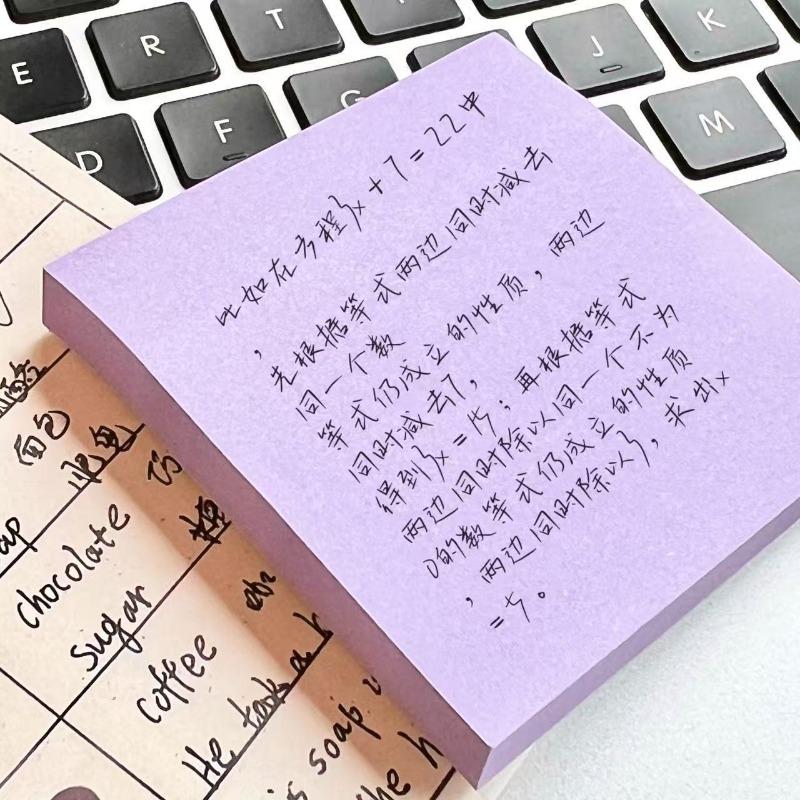 E
R
T
J
K
D
F
G
M
比如在方程3x+7=22中
，先根据等式两边同时减去
同一个数
等式仍成立的性质，两边
同时减去7，
得到3x=15；再根据等式
两边同时除以同一个不为
0的数等式仍成立的性质
，两边同时除以3，求出x
=5。
面包
chocolate
sugar
coffee
He took a
is soap
the h